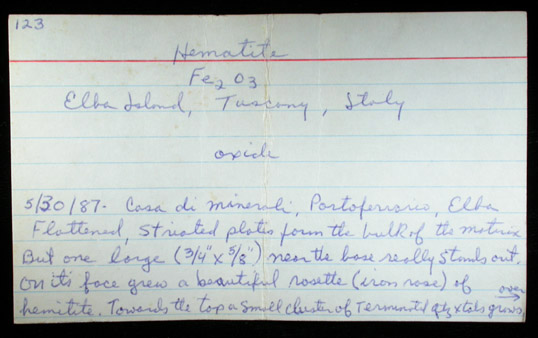 123
Hematite
Fe2O3
Elba Island, Tuscany, Italy
oxide
5/30/87- Casa di minerali, Portoferraio, Elba
Flattened, striated plates form the bulk of the matrix
But one large (3/4" x 5/8") near the base really stands out.
On its face grew a beautiful rosette (iron rose) of
hemitite. Towards the top a small cluster of Terminated qtz xtals grows.
over →